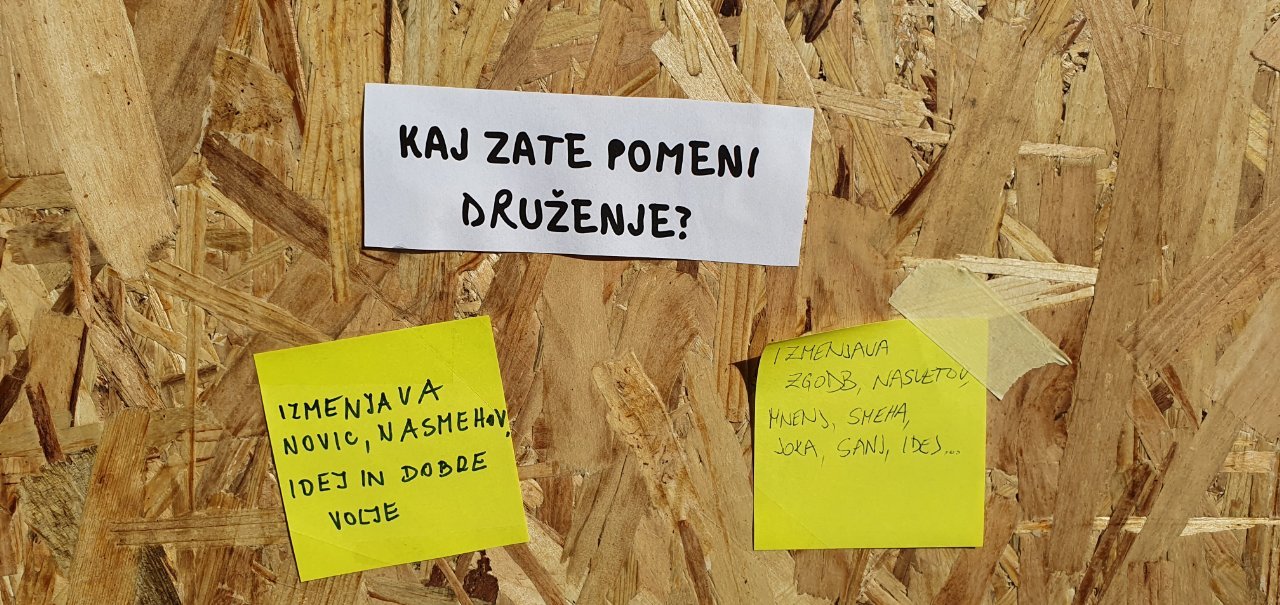 KAJ ZATE POMENI
DRUŽENJE?
IZMENJAVA
NOVIC, NASMEHOV,
IDEJ IN DOBRE
VOLJE
IZMENJAVA
ZGODB, NASVETOV,
MNENJ, SMEHA,
JOKA, SANJ, IDEJ...